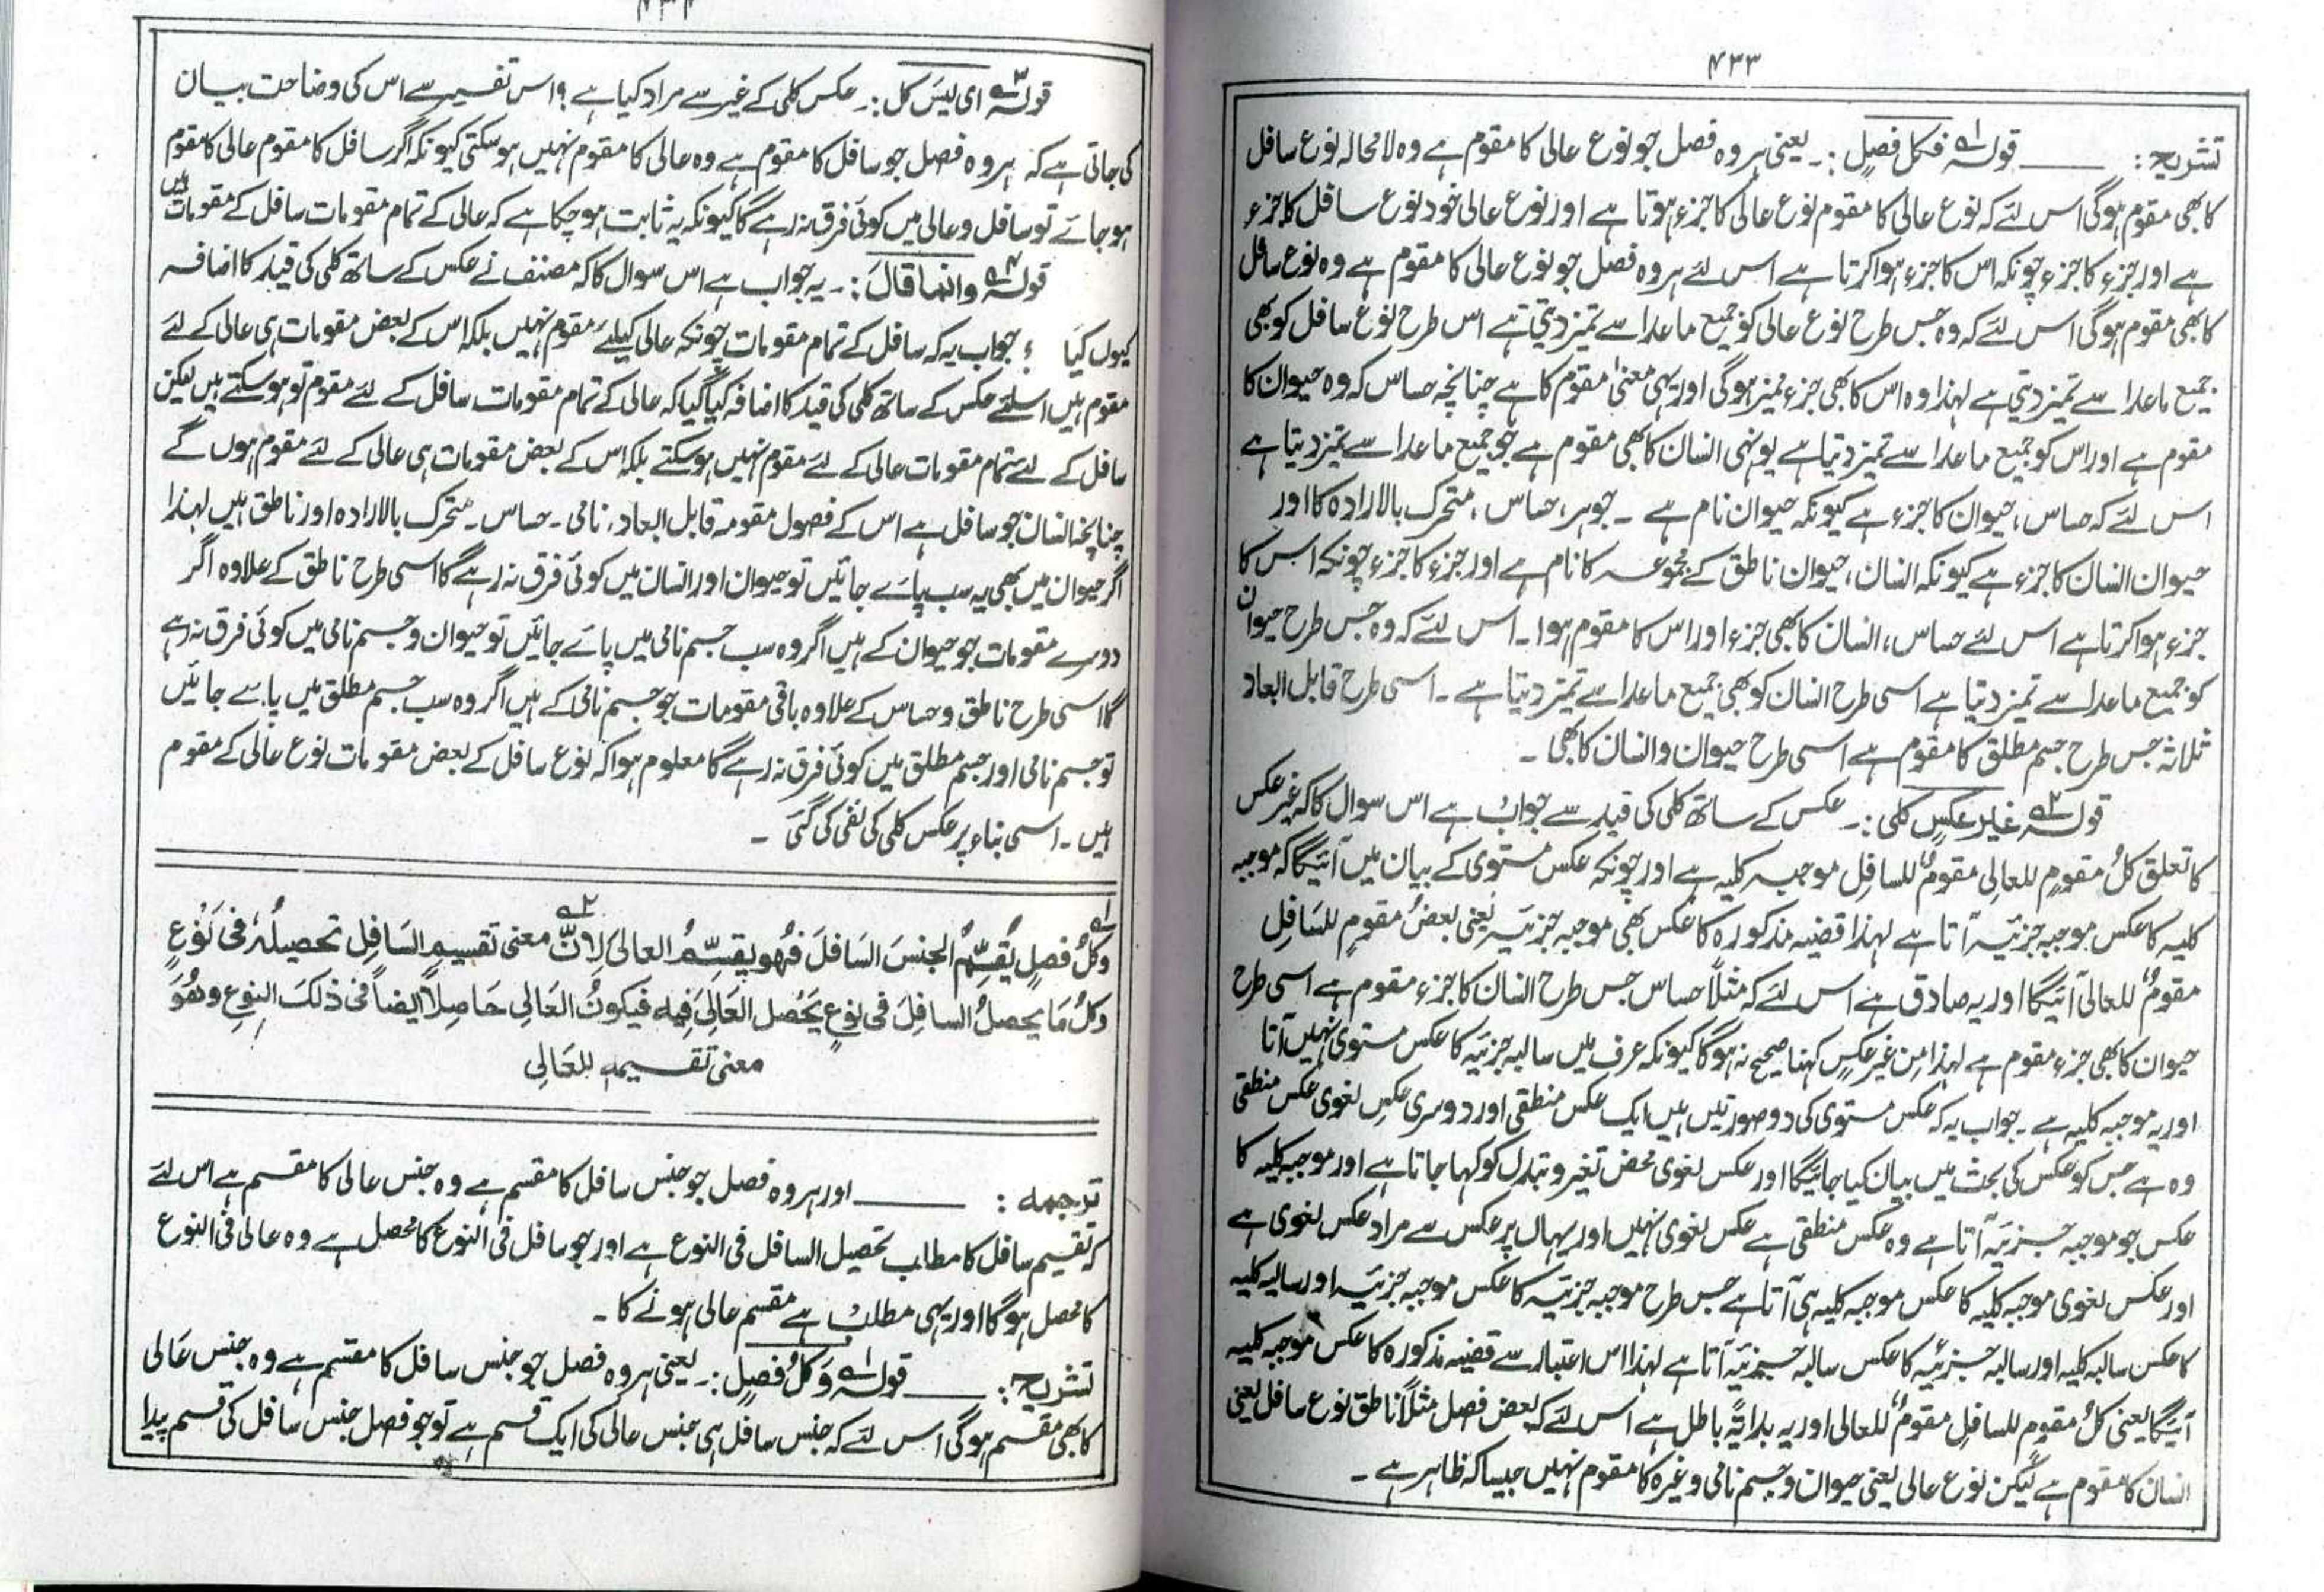 ۴۳۳
تشریح: ــــــ قولہ ۱ فکل فصل :۔ یعنی ہر وہ فصل جو نوع عالی کا مقوم ہے وہ لامحالہ نوع سافل
کا بھی مقوم ہوگی اس لئے کہ نوع عالی کا مقوم نوع عالی کا جزء ہوتا ہے اور نوع عالی خود نوع سافل کا جزء
ہے اور جزء کا جزء چونکہ اس کا جزء ہوا کرتا ہے اس لئے ہر وہ فصل جو نوع عالی کا مقوم ہے وہ نوع سافل
کا بھی مقوم ہوگی اس لئے کہ وہ جس طرح نوع عالی کو جمیع ماعدا سے تمیز دیتی ہے اس طرح نوع سافل کو بھی
جمیع ماعدا سے تمیز دیتی ہے لہذا وہ اس کا بھی جزء ممیز ہوگی اور یہی معنیٰ مقوم کا ہے چنانچہ حساس کہ وہ حیوان کا
مقوم ہے اور اس کو جمیع ماعدا سے تمیز دیتا ہے یونہی انسان کا بھی مقوم ہے جو جمیع ماعدا سے تمیز دیتا ہے
اس لئے کہ حساس، حیوان کا جزء ہے کیونکہ حیوان نام ہے ۔ جوہر، حساس، متحرک بالارادہ کا اور
حیوان انسان کا جزء ہے کیونکہ انسان، حیوان ناطق کے مجموعہ کا نام ہے اور جزء کا جزء چونکہ اس کا
جزء ہوا کرتا ہے اس لئے حساس، انسان کا بھی جزء اور اس کا مقوم ہوا ۔ اس لئے کہ وہ جس طرح حیوان
کو جمیع ماعدا سے تمیز دیتا ہے اسی طرح انسان کو بھی جمیع ماعدا سے تمیز دیتا ہے ۔ اسی طرح قابل ابعاد
ثلاثہ جس طرح جسم مطلق کا مقوم ہے اسی طرح حیوان و انسان کا بھی ۔
قولہ ۲ غیر عکس کلی :۔ عکس کے ساتھ کلی کی قید سے جواب ہے اس سوال کا کہ غیر عکس
کا تعلق کلُ مقومٍ للعالی مقومٌ للسافِل موجبہ کلیہ ہے اور چونکہ عکس مستوی کے بیان میں آئیگا کہ موجبہ
کلیہ کا عکس موجبہ جزئیہ آتا ہے لہذا قضیہ مذکورہ کا عکس بھی موجبہ جزئیہ یعنی بعضُ مقومٍ للسَافِلِ
مقومٌ للعالی آئیگا اور یہ صادق ہے اس لئے کہ مثلاً حساس جس طرح انسان کا جزء مقوم ہے اسی طرح
حیوان کا بھی جزء مقوم ہے لہذا مِن غیرِ عکسٍ کہنا صحیح نہ ہوگا کیونکہ عرف میں سالبہ جزئیہ کا عکس مستوی نہیں آتا
اور یہ موجبہ کلیہ ہے ۔ جواب یہ کہ عکس مستوی کی دو صورتیں ہیں ایک عکس منطقی اور دوسری عکس لغوی عکس منطقی
وہ ہے جس کو عکس کی بحث میں بیان کیا جائیگا اور عکس لغوی محض تغیر و تبدل کو کہا جاتا ہے اور موجبہ کلیہ کا
عکس جو موجبہ جزئیہ آتا ہے وہ عکس منطقی ہے عکس لغوی نہیں اور یہاں پر عکس سے مراد عکس لغوی ہے
اور عکس لغوی موجبہ کلیہ کا عکس موجبہ کلیہ ہی آتا ہے جس طرح موجبہ جزئیہ کا عکس موجبہ جزئیہ اور سالبہ کلیہ
کا عکس سالبہ کلیہ اور سالبہ جزئیہ کا عکس سالبہ جزئیہ آتا ہے لہذا اس اعتبار سے قضیہ مذکورہ کا عکس موجبہ کلیہ
آئیگا یعنی کلُ مقومٍ للسافِلِ مقومٌ للعالی اور یہ بداہۃً باطل ہے اس لئے کہ بعض فصل مثلاً ناطق نوع سافل یعنی
انسان کا مقوم ہے لیکن نوع عالی یعنی حیوان و جسم نامی وغیرہ کا مقوم نہیں جیسا کہ ظاہر ہے ۔
قولہ ۳ ای لیسَ کل :۔ عکس کلی کے غیر سے مراد کیا ہے ؟ اس تفسیر سے اس کی وضاحت بیان
کی جاتی ہے کہ ہر وہ فصل جو سافل کا مقوم ہے وہ عالی کا مقوم نہیں ہو سکتی کیونکہ اگر سافل کا مقوم عالی کا مقوم
ہو جائے تو سافل و عالی میں کوئی فرق نہ رہے گا کیونکہ یہ ثابت ہو چکا ہے کہ عالی کے تمام مقومات سافل کے مقومات ہیں
قولہ ۴ وانما قالَ :۔ یہ جواب ہے اس سوال کا کہ مصنف نے عکس کے ساتھ کلی کی قید کا اضافہ
کیوں کیا ؟ جواب یہ کہ سافل کے تمام مقومات چونکہ عالی کیلئے مقوم نہیں بلکہ اس کے بعض مقومات ہی عالی کے لئے
مقوم ہیں اسلئے عکس کے ساتھ کلی کی قید کا اضافہ کیا گیا کہ عالی کے تمام مقومات سافل کے لئے مقوم تو ہو سکتے ہیں لیکن
سافل کے لئے تمام مقومات عالی کے لئے مقوم نہیں ہو سکتے بلکہ اس کے بعض مقومات ہی عالی کے لئے مقوم ہوں گے
چنانچہ انسان جو سافل ہے اس کے فصول مقومہ قابل ابعاد، نامی ۔ حساس ۔ متحرک بالارادہ اور ناطق ہیں لہذا
اگر حیوان میں بھی یہ سب پائے جائیں تو حیوان اور انسان میں کوئی فرق نہ رہے گا اسی طرح ناطق کے علاوہ اگر
دوسرے مقومات جو حیوان کے ہیں اگر وہ سب جسم نامی میں پائے جائیں تو حیوان و جسم نامی میں کوئی فرق نہ رہے
گا اسی طرح ناطق و حساس کے علاوہ باقی مقومات جو جسم نامی کے ہیں اگر وہ سب جسم مطلق میں پائے جائیں
تو جسم نامی اور جسم مطلق میں کوئی فرق نہ رہے گا معلوم ہوا کہ نوع سافل کے بعض مقومات نوع عالی کے مقوم
ہیں ۔ اسی بناء پر عکس کلی کی نفی کی گئی ۔
۱ وَکلُّ فصلٍ یُقسِّمُ الجنسَ السَافلَ فَہُو یقسِّمُ العالیَ ۲ لِاَنَّ معنی تقسیمِ السَافِلِ تحصیلُہٗ فی نَوْعٍ
وَکلُّ مَا یحصلُ السافِلَ فی نوعٍ یَحُصل العَالِیَ فِیہِ فیکونُ العَالِی حَاصِلاً ایضاً فی ذلکَ النوعِ وھُوَ
معنی تقسیمہ للعَالِی
ترجمہ : ــــــ اور ہر وہ فصل جو جنس سافل کا مقسم ہے وہ جنس عالی کا مقسم ہے اس لئے
کہ تقسیم سافل کا مطلب تحصیل السافل فی النوع ہے اور جو سافل فی النوع کا محصل ہے وہ عالی فی النوع
کا محصل ہوگا اور یہی مطلب ہے مقسم عالی ہونے کا ۔
تشریح: ــــــ قولہ ۱ وَکلُّ فصلٍ :۔ یعنی ہر وہ فصل جو جنس سافل کا مقسم ہے وہ جنس عَالی
کا بھی مقسم ہوگی اس لئے کہ جنس سافل ہی جنس عالی کی ایک قسم ہے تو جو فصل جنس سافل کی قسم پیدا